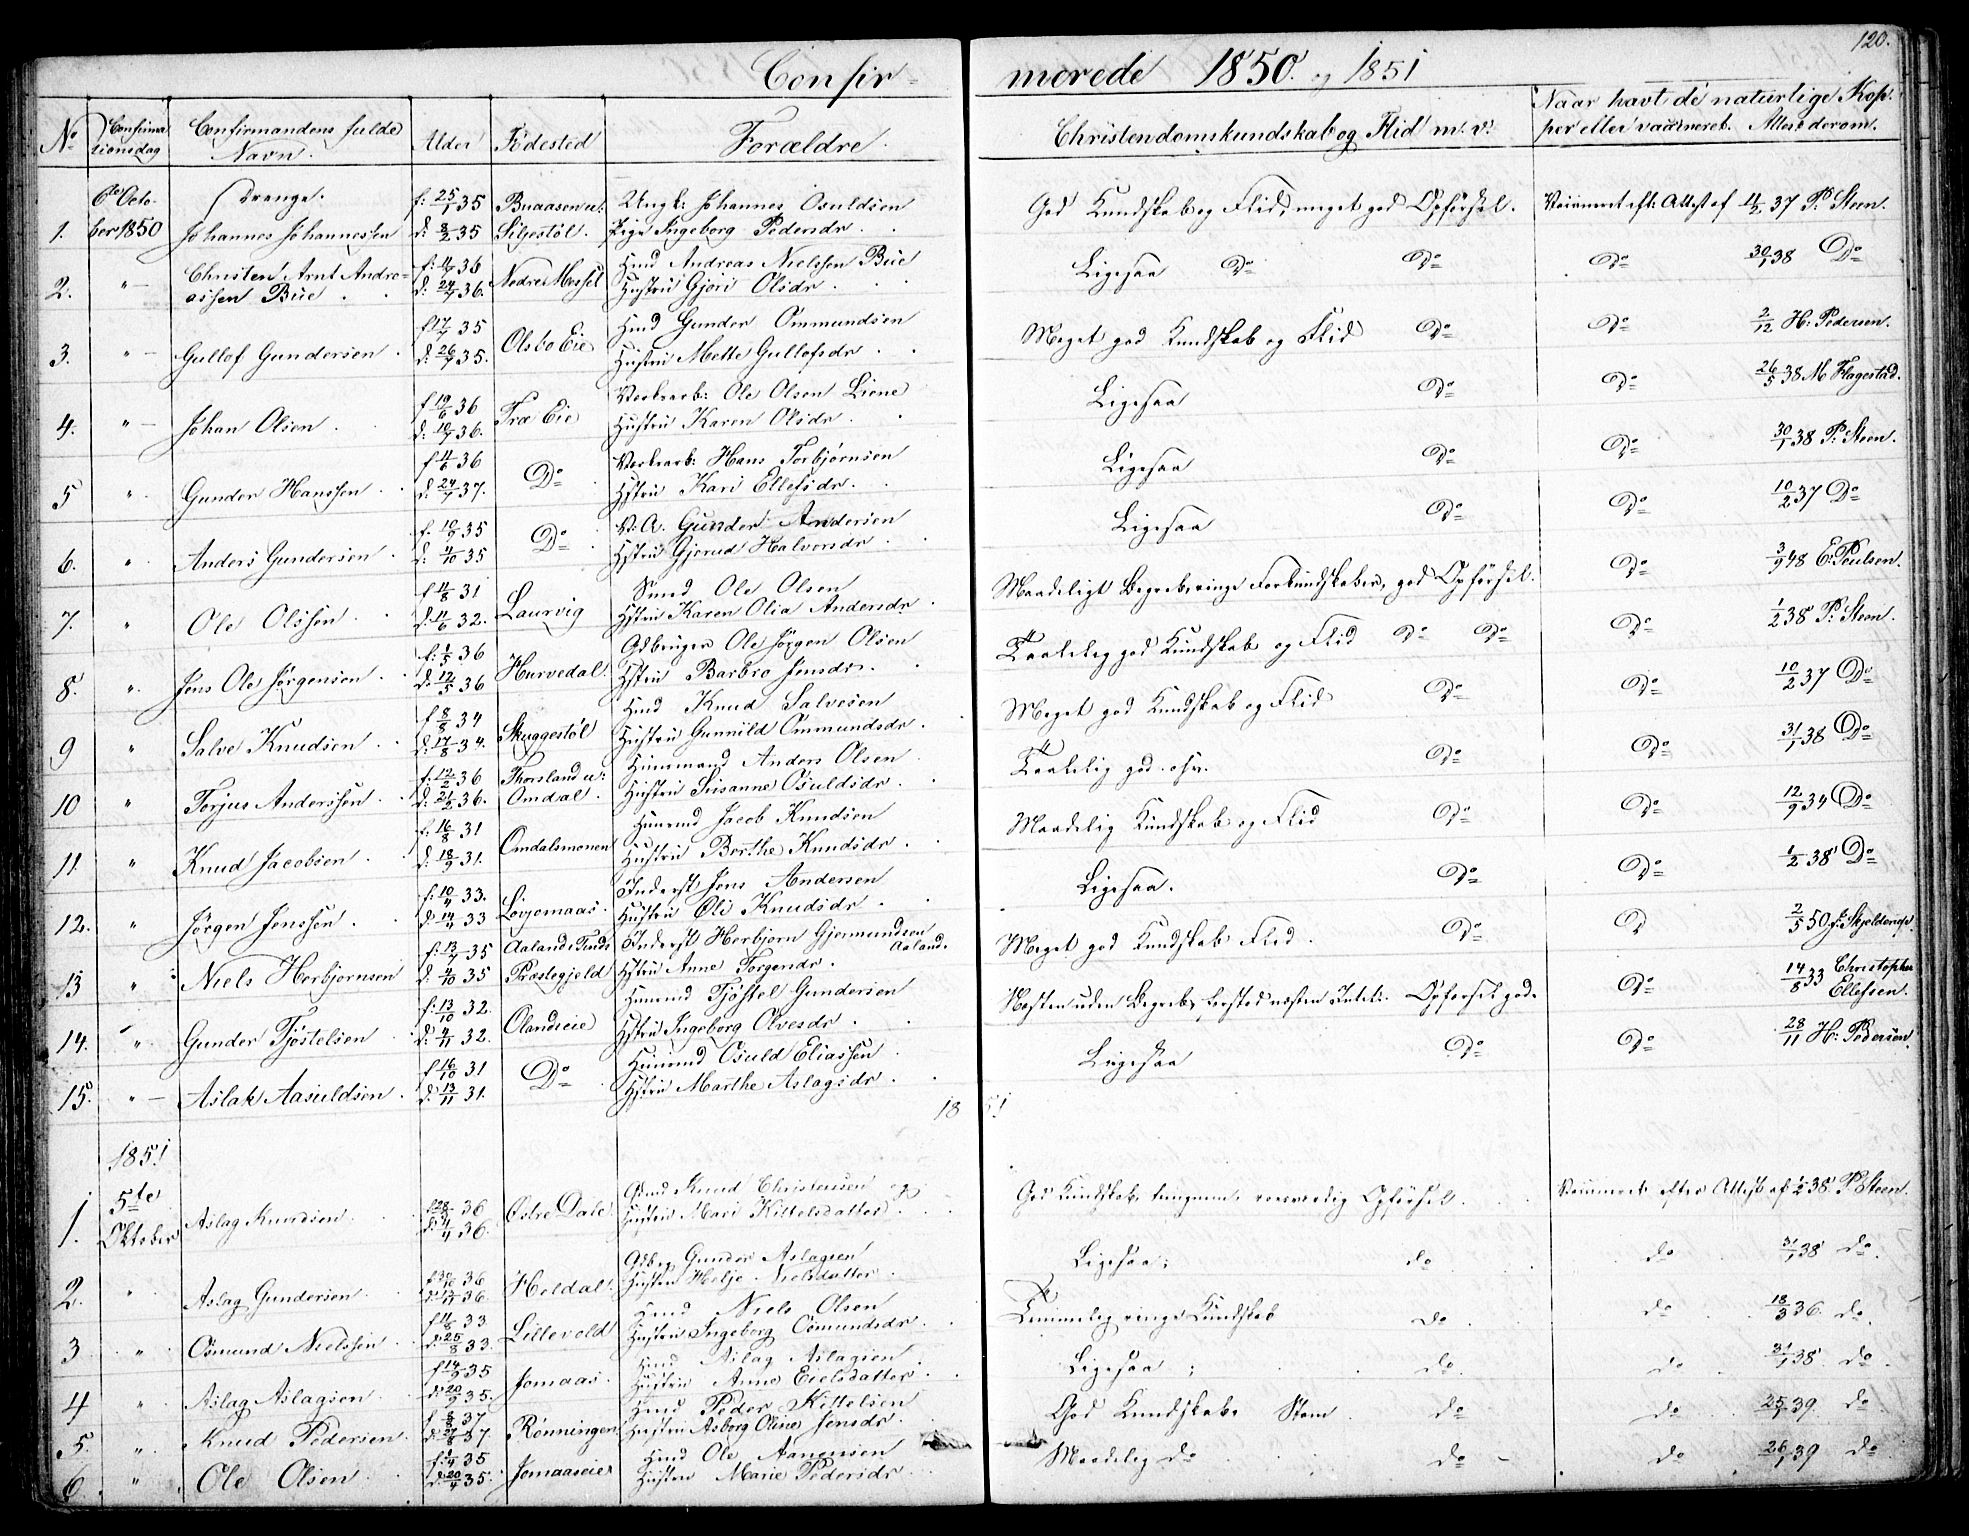 120.
Confir- merede 1850. og 1851
No Confirmationsdag Confirmandens fulde Navn. Alder Fødested Forældre. Christendomskundskab og Flid m. v. Naar havt de naturlige Kopper eller vaccineret. Attest derom.
6te October 1850 Drenge.
1. Johannes Johannessen f: 25/1 35 d: 8/2 35 Buaasen u: Siljestöl. Ungk: Johannes Osuldsen Pige Ingeborg Pedersdr. God Kundskab og Flid, meget god Opförsel. Vaccineret eft: Attest af 11/2 37 P. Steen.
2. " Christen Arnt Andreassen Bue f: 11/7 36 d: 24/7 36. Nedre Messel Hmd Andreas Nielssen Bue Hustru Gjöri Olsdr. Ligesaa Do Do Do 30/1 38 Do
3. " Gullof Gundersen f 17/7 35 d: 26/7 35. Olsbo Eie Hmd Gunder Ommundsen Hustru Mette Gullofsdr. Meget god Kundskab og Flid Do Do 2/12 H: Pedersen.
4. " Johan Olsen f 19/6 36 d: 10/7 36. Træ Eie Verksarb: Ole Olsen Liene Hustru Karen Olsdr. Ligesaa Do Do 26/5 38 M Flagestad.
5 " Gunder Hanssen f 11/6 36 d: 24/7 37. Do Verksarb: Hans Torbjørnsen Hstru Kari Ellefsdr. Ligesaa Do Do 30/1 38 P. Steen.
6. " Anders Gundersen f. 10/9 35 d: 4/10 35 Do V: A. Gunder Andersen Hstru Gjerud Halvorsdr. Ligesaa Do Do 10/2 37 Do
7. " Ole Olssen f 11/8 31 d: 11/6 32. Laurvig Smed Ole Olsen Hstru Karen Olia Andersdr. Maadeligt Begreb, ringe Forkundskaber, god Opförsel. Do 3/9 48 E. Poulsen.
8. " Jens Ole Jørgensen f: 1/5 36 d: 12/5 36 Hurvedal. Gdbruger Ole Jörgen Olsen Hstru Barbro Jensdr. Taalelig god Kundskab og Flid Do Do Do 1/2 38 P: Steen.
9 " Salve Knudsen f 8/8 34 d: 17/8 34. Skuggestöl Hmd Knud Salvesen Hustru Gunnild Ommundsdr. Meget god Kundskab og Flid Do Do 10/2 37 Do
10 " Torjus Anderssen f: 12/2 36 d: 21/2 36. Thorsland u: Omdal. Husmand Anders Olsen Hustru Susanne Osuldsdr. Taalelig god Do Do 31/1 38 Do
11. " Knud Jacobsen f: 16/8 31 d: 18/9 31. Omdalsmonen Husmd Jacob Knudsen Hustru Berthe Knudsdr. Maadelig Kundskab og Flid Do Do 12/9 34 Do
12. " Jörgen Jenssen f: 10/4 33. d: 14/4 33 Løvjomaas. Inderst Jens Andersen Hustru Oli Knudsdr. Ligesaa. Do Do 1/2 38 Do
13 " Niels Herbjørnsen f: 13/7 35 d: 4/10 35 Aaland i Tveds Præstegjeld Inderst Herbjørn Gjermundsen Aaland. Hstru Anne Torgersdr. Meget god Kundskab Flid. Do D 2/5 50
14. " Gunder Tjöstelsen f: 13/10 32. d: 4/11 32. Olandseie Husmd Tjöstel Gundersen Hstru Ingeborg Olvesdr. Næsten uden Begreb, forstod næsten Intet. Opförsel god. Do 14/8 33 Christopher Ellefsen.
15. " Aslak Aasuldsen f 16/10 31 d: 13/11 31. Do Husmd Osuld Eliassen Hstru Marthe Aslagsdr. Ligesaa Do Do 28/11 H: Pedersen.
1851
1851
1. 5te Oktober Aslag Knudsen 36 d: 4/4 36. Östre Dale Gbmd Knud Christensen og Hustru Mari Kittelsdatter God Kundskab Opförsel Vaccineret efter Attest af 1/2 38 P. Steen.
2. " Aslag Gundersen 36 36 Heldal. Gdbrg Gunder Aslagsen Hustru Helje Nielsdatter Ligesaa; do do 31/1 38 do.
3 " Osmund Nielssen f 11/8 33 d: 25/8 33. Lillevold Hmd Niels Olsen Hustru Ingeborg Osmundsdr. Temmelig ringe Kundskab do do 18/3 36. do.
4 " Aslag Aslagsen f 14/9 35 d: 20/9 35. Jomaas. Hmd Aslag Aslagsen Hustru Anne Eielsdatter. Ligesaa; do. do 31/1 38. do.
5. " Knud Pedersen 37 37. Rønningen Hmd Peder Kittelsen Hustru Asborg Oline Jensdr. God Kundskab. do do 25/1 39. do
6. " Ole Olsen 35 d: 20/4 35. Jomaaseie Hmd Ole Aanensen Hustru Marie Pedersdr. Maadelig do do do 26/1 39 do